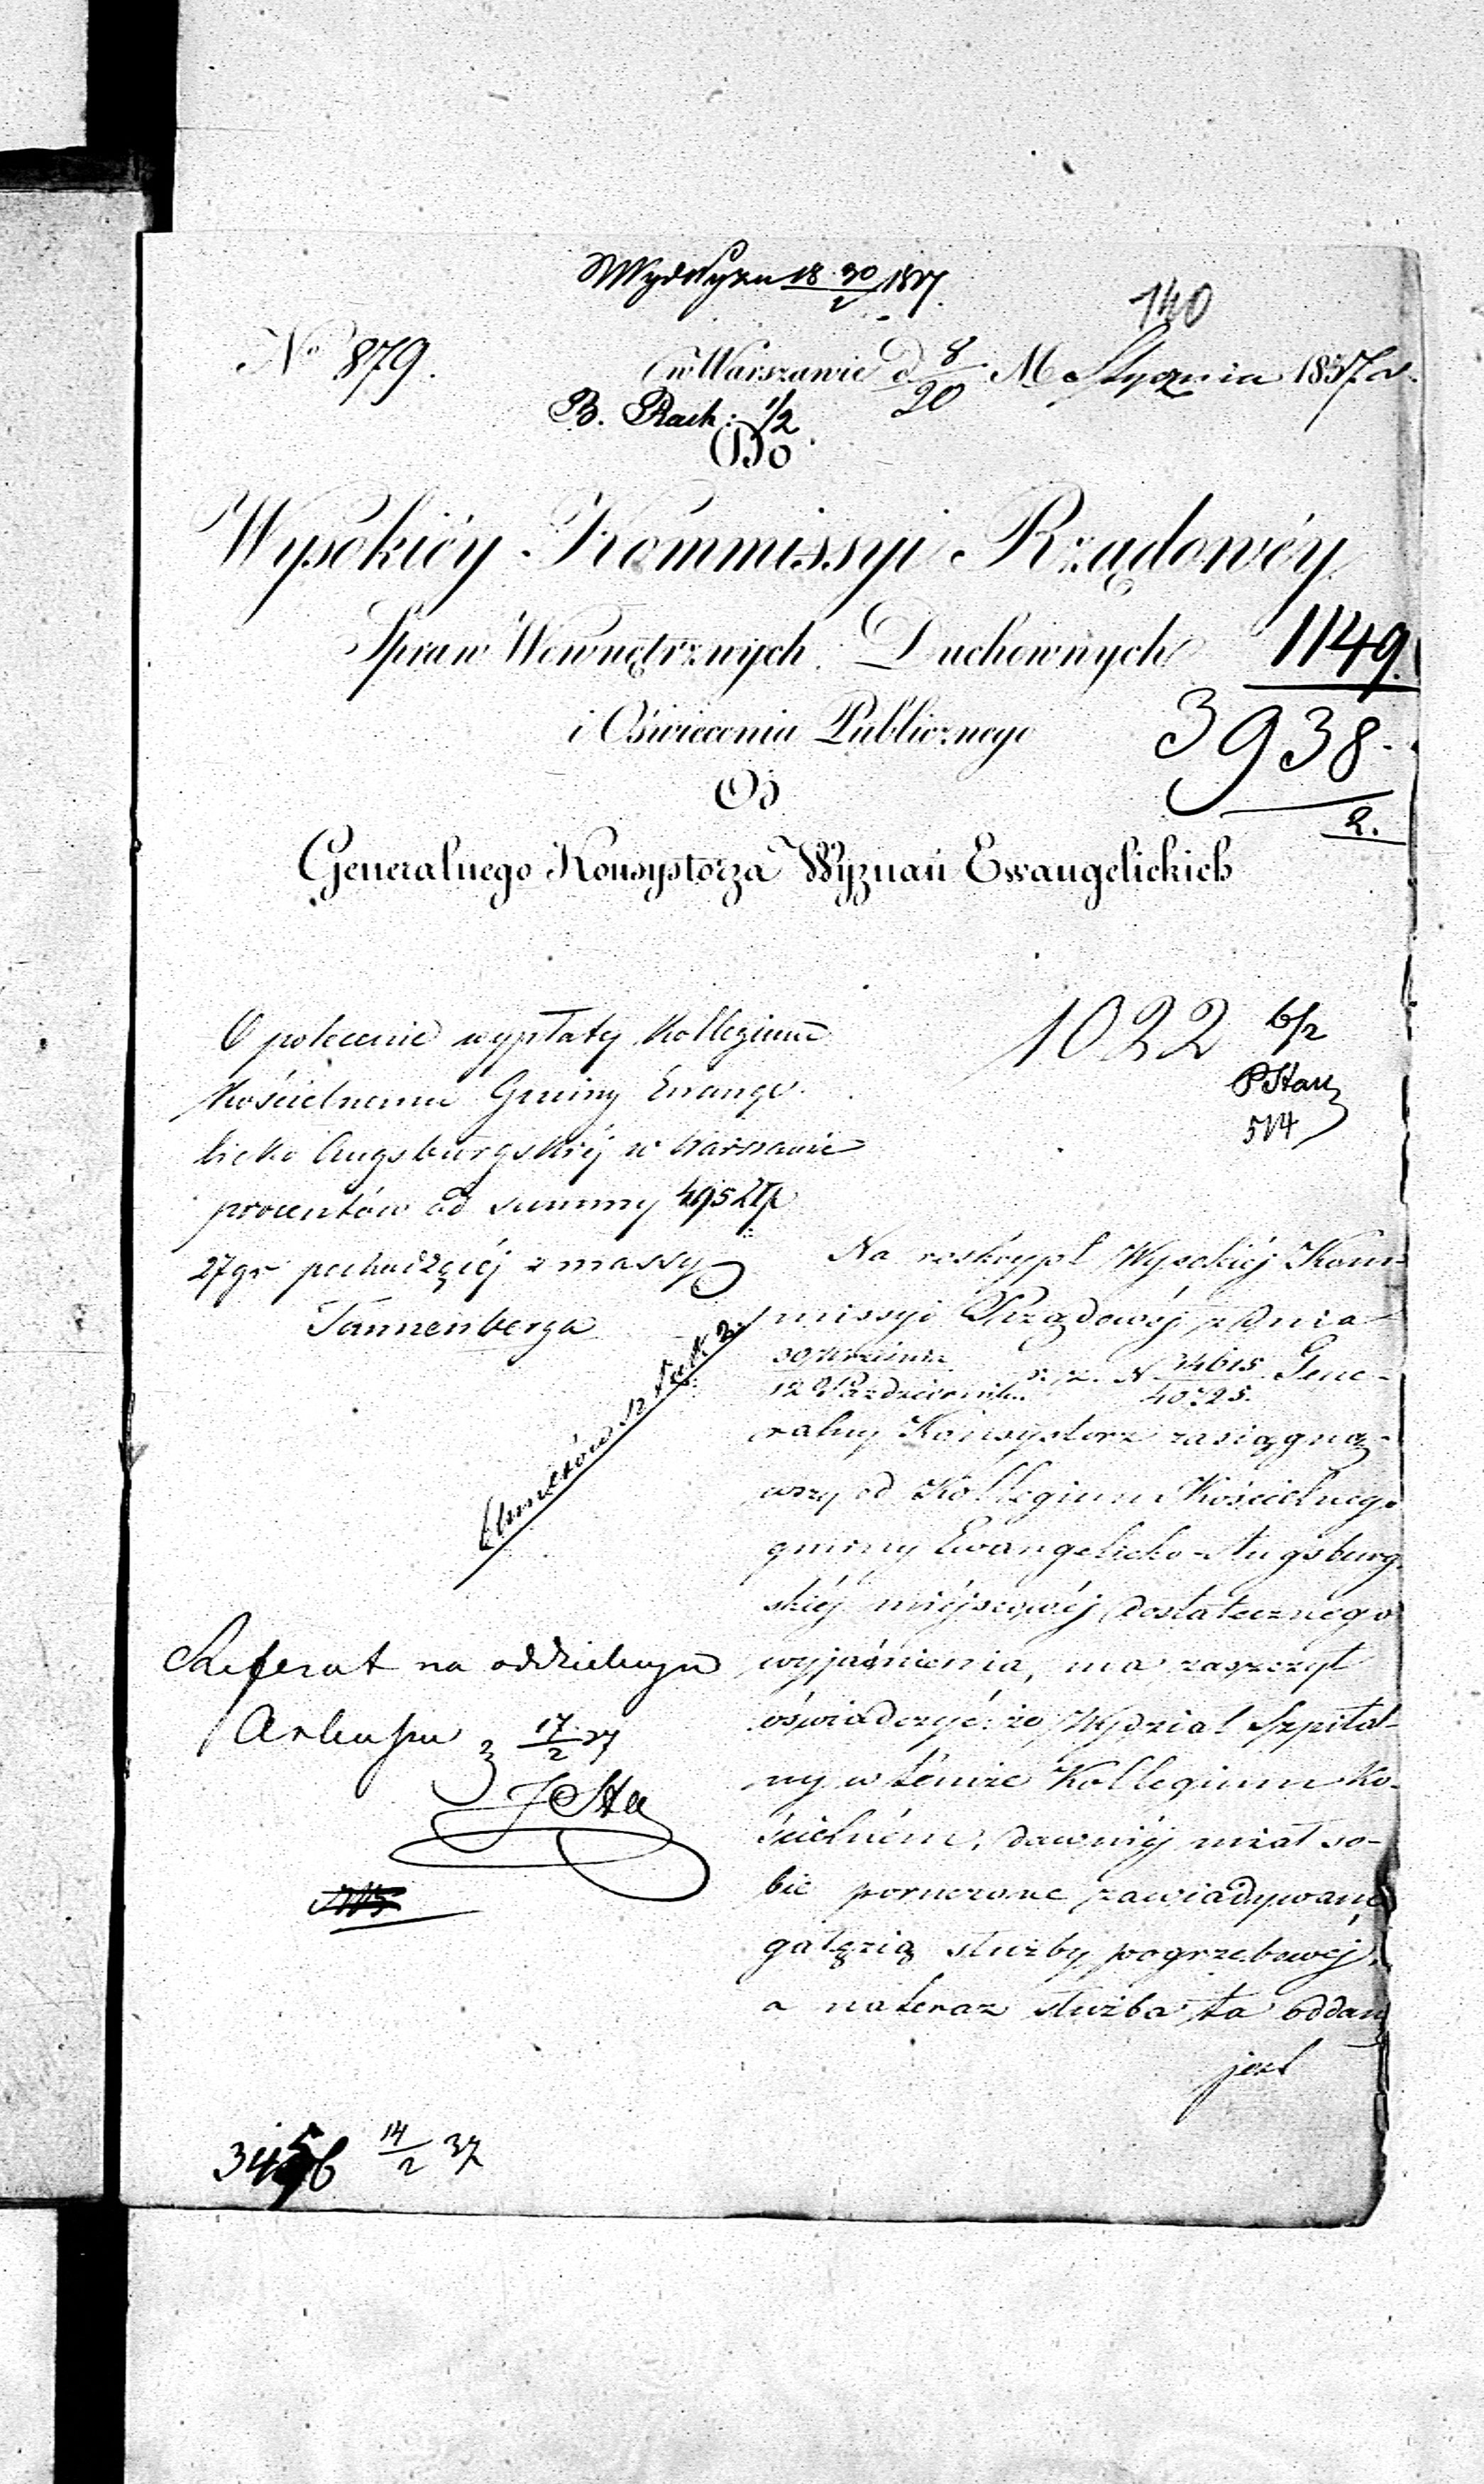 18 30/2 1837.
140
No 879.
w Warszawie d 8/20 M Stycznia 1837 r.
B. Rach: 1/2
Do
Wysokiéy Kommissyi Rządowéy
Spraw Wewnętrznych Duchownych
1149.
i Oświecenia Publicznego
3938.
2.
Od
Generalnego Konsystorza Wyznań Ewangelickich
O polecenie wypłaty Kollegium
Kościelnemu Gminy Ewange-
licko Augsburgskiéj w Warszawie
procentów od summy 495 Złp
27 gr pochodzącéj z massy
Tannenberga
1022 6/2
514
Na reskrypt Wysokiéj Kom-
missyi Rządowéj z dnia
30 Września / 12 Października r. z. N 14615 / 40725. Gene-
ralny Konsystorz zasiągną-
wszy od Kollegium Kościelnego
gminy Ewangelicko-Augsburg-
skiéj miéjscowéj dostatecznego
wyjaśnienia, ma zaszczyt
oświadczyć: że Wydział Szpital-
ny w témże Kollegium Ko-
ścielném, dawniéj miał so-
bie poruczone zawiadywanie
gałęzią służby pogrzebowéj,
a nateraz służba ta oddaną
jest
Referat na oddzielnym
Arkuszu
17/2 37
3456 14/2 37